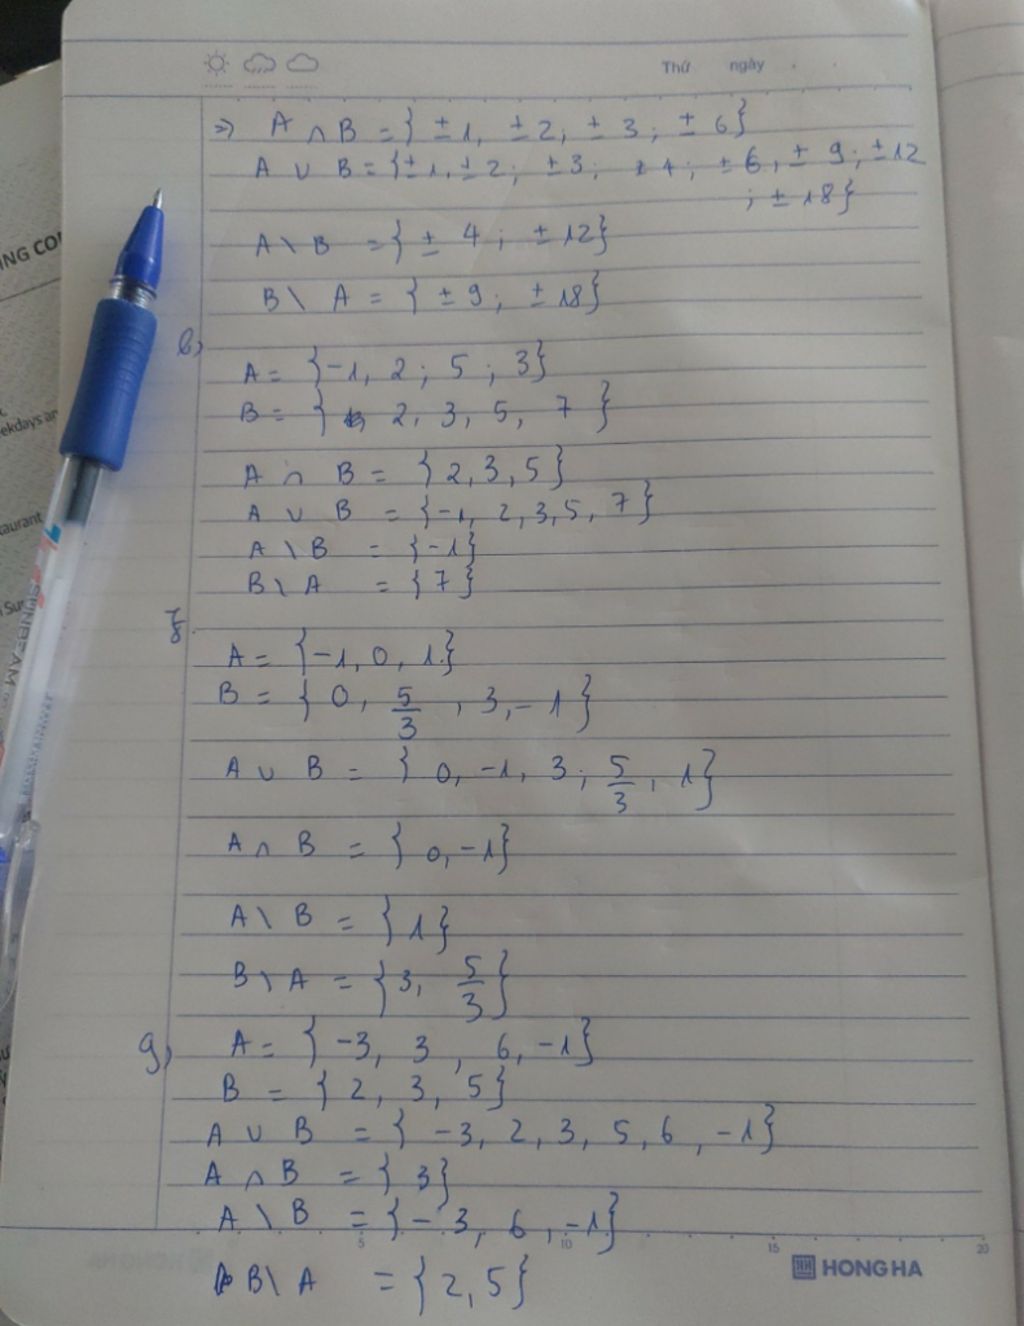 Thứ ngày
⇒ A ∩ B = { ±1, ±2; ±3; ±6}
A ∪ B = {±1, ±2; ±3; ±4; ±6, ±9; ±12
; ±18}
A \ B = { ± 4; ±12}
B \ A = { ±9; ±18}
A = {-1, 2; 5; 3}
B = { 2, 3, 5, 7 }
A ∩ B = {2, 3, 5}
A ∪ B = {-1, 2, 3, 5, 7}
A \ B = {-1}
B \ A = {7}
A = {-1, 0, 1}
B = { 0, 5/3, 3, -1 }
A ∪ B = { 0, -1, 3; 5/3, 1}
A ∩ B = { 0, -1}
A \ B = {1}
B \ A = {3, 5/3}
g) A = { -3, 3, 6, -1}
B = { 2, 3, 5}
A ∪ B = { -3, 2, 3, 5, 6, -1}
A ∩ B = { 3}
A \ B = {-3, 6, -1}
B \ A = {2, 5}
5 10 15 20
HONG HA
ING CO
ekdays an
taurant